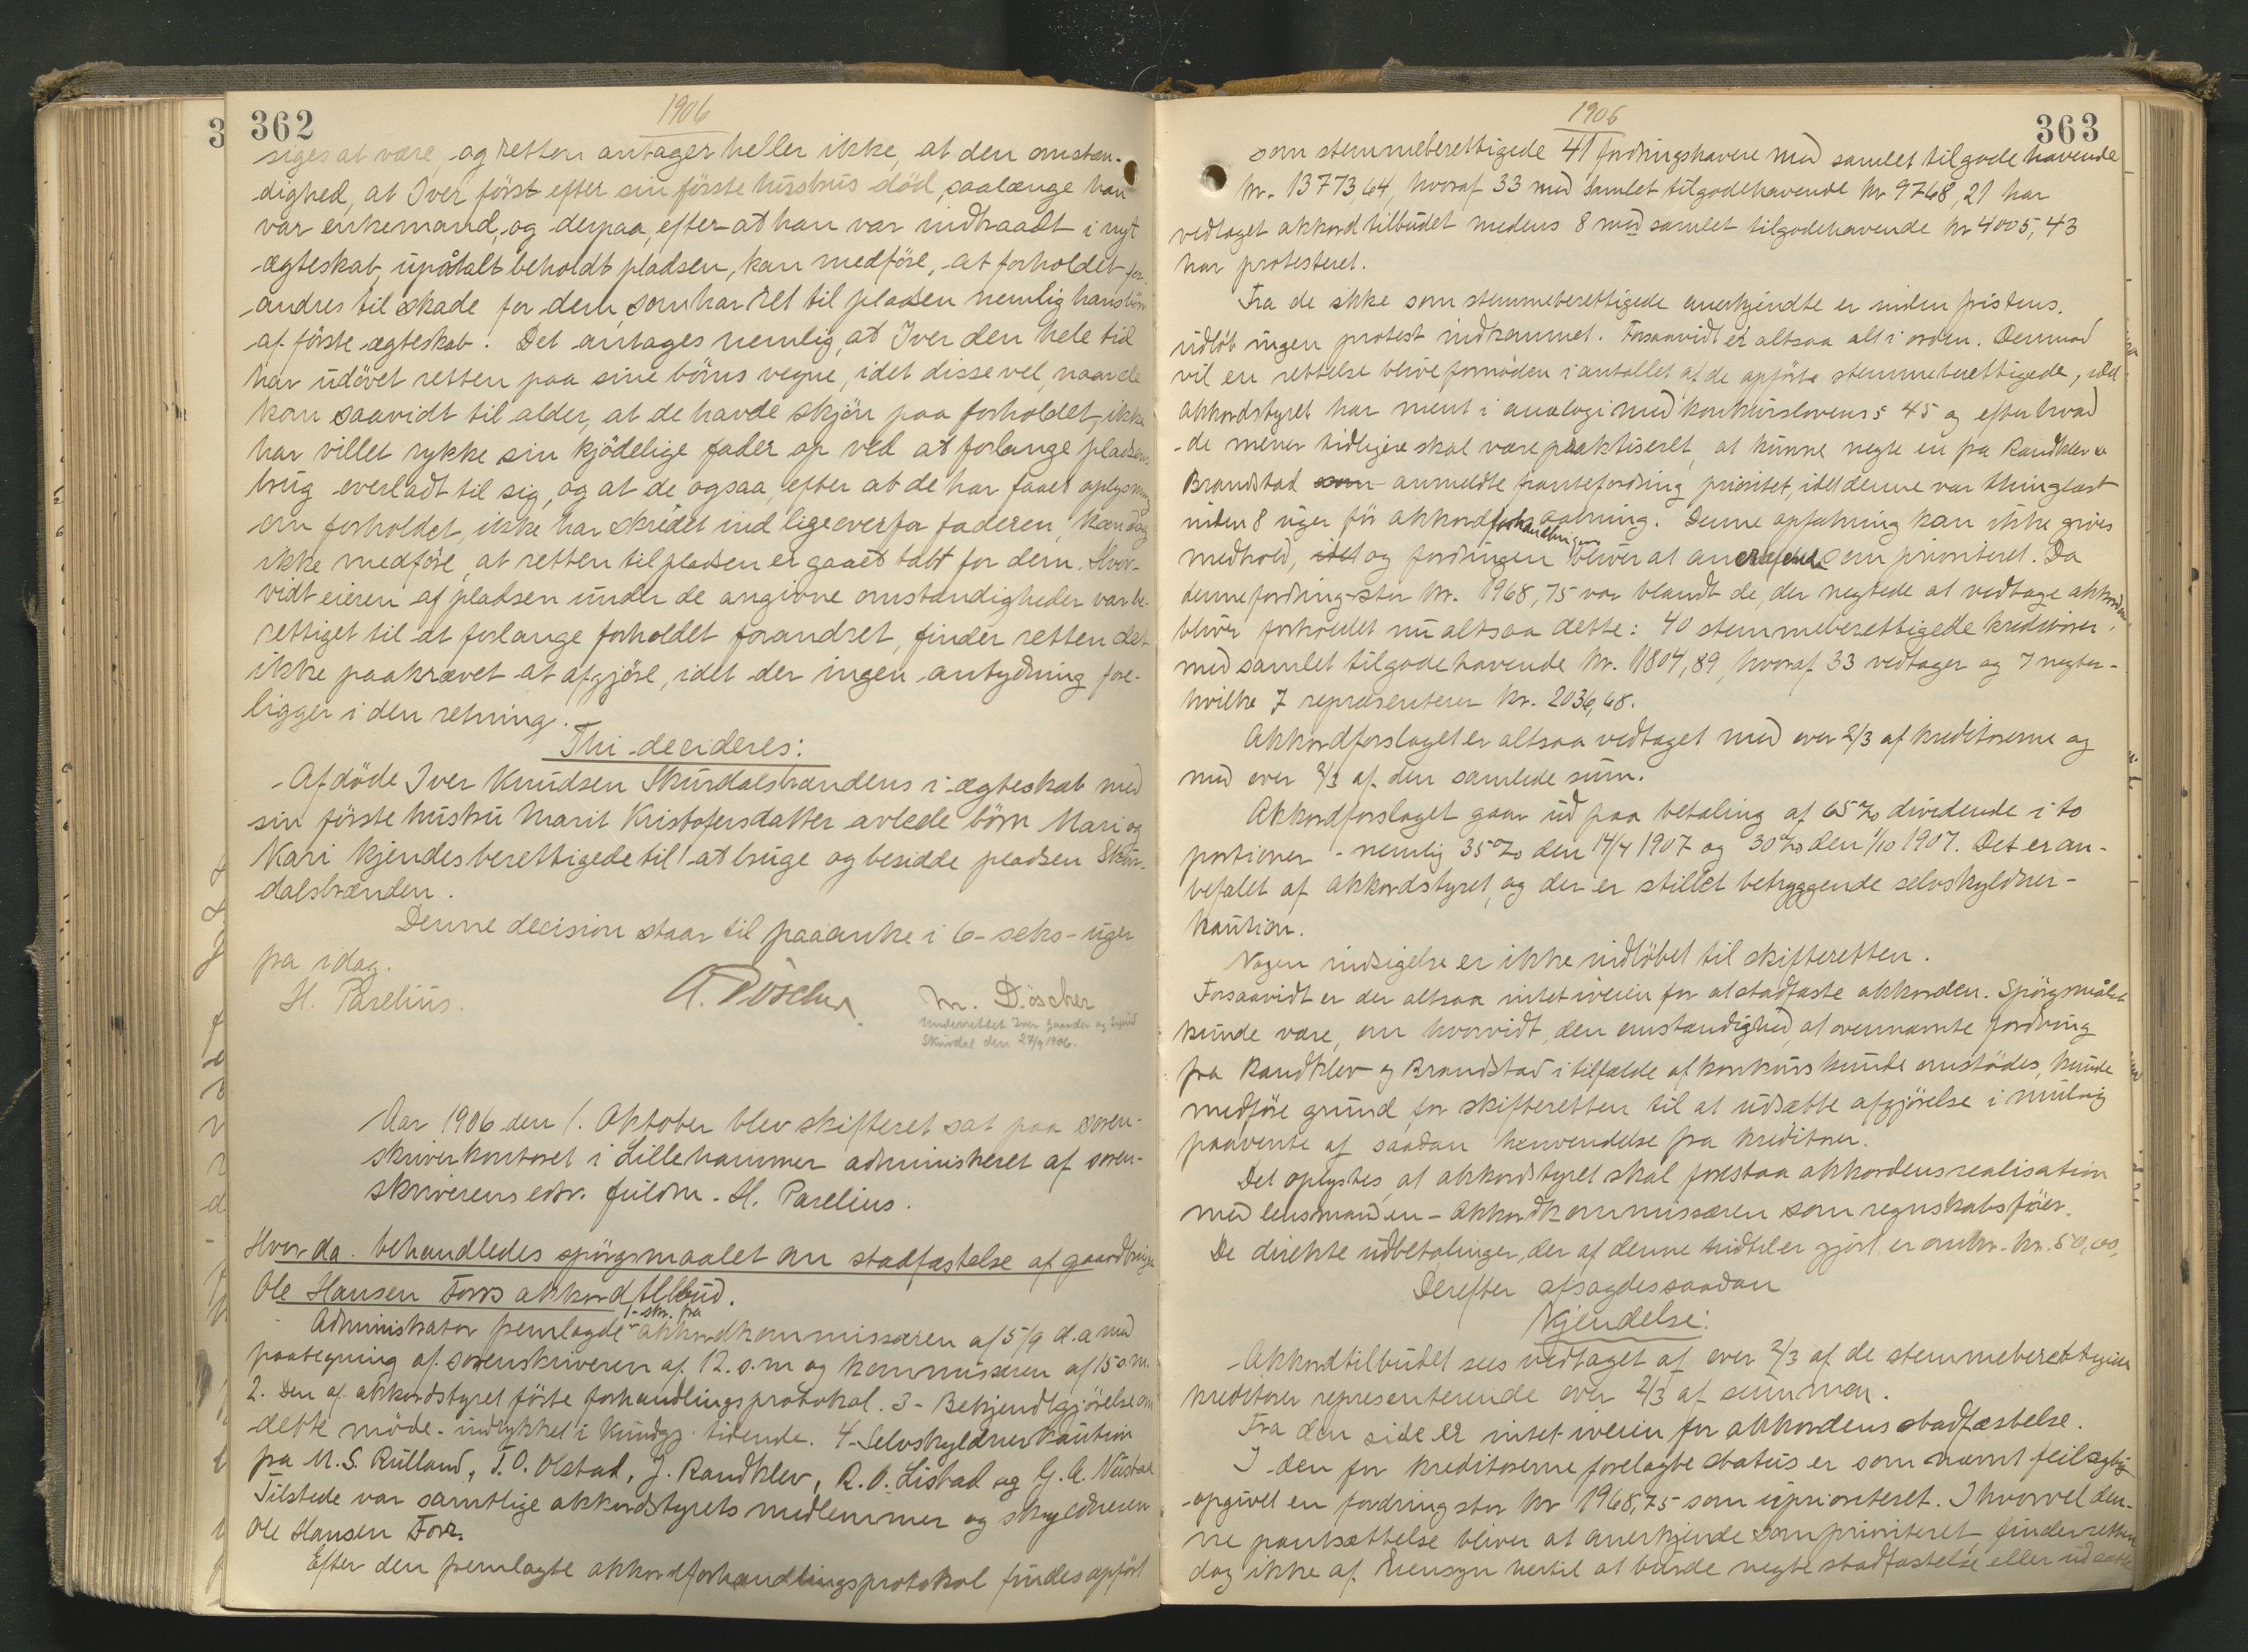 362
1906
siges at være, og retten antager heller ikke, at den omstæn-
dighed, at Iver først efter sin første hustrus død, saalænge han
var enkemand, og derpaa, efter at han var indtraadt i nyt
ægteskab, upåtalt beholdt pladsen, kan medføre, at forholdet for-
andres til skade for dem, som har ret til pladsen nemlig hans børn
af første ægteskab. Det antages nemlig, at Iver den hele tid
har udøvet retten paa sine børns vegne, idet disse vel, naar de
kom saavidt til alder, at de havde skjøn paa forholdet, ikke
har villet rykke sin kjødelige fader op ved at forlange pladsens
brug overladt til sig, og at de ogsaa, efter at de har faaet oplysning
om forholdet, ikke har skridet ind ligeoverfor faderen, kan dog
ikke medføre, at retten til pladsen er gaaet tabt for dem. Hvor-
vidt eieren af pladsen under de angivne omstændigheder var be-
rettiget til at forlange forholdet forandret, finder retten det
ikke paakrævet at afgjøre, idet der ingen antydning fore-
ligger i den retning.
Thi decideres:
Afdøde Iver Knudsen Skurdalstrandens i ægteskab med
sin første hustru Marit Kristofersdatter avlede børn Mari og
Kari kjendes berettigede til at bruge og besidde pladsen Skur-
dalstranden.
Denne decision staar til paaanke i 6 - seks - uger
fra idag.
H. Parelius. A. Döscher. M. Döscher
Underrettet Iver og
Skurdal den 27/9 1906.
Aar 1906 den 1. Oktober blev skifteret sat paa soren-
skriverkontoret i Lillehammer administreret af soren-
skriverens edsv. fuldm. H. Parelius.
Hvorda. behandledes spørgsmaalet om stadfæstelse af gaardbruger
Ole Hansen Forrs akkordtilbud.
1- skr. fra
Administrator fremlagde akkordkommissæren af 5/9 d.a. med
paategning af sorenskriveren af 12. s.m og kommissæren af 15 s.m.
2. Den af akkordstyret førte forhandlingsprotokol. 3 - Bekjendtgjørelse om
dette møde - indrykket i Kundgj. tidende. 4 - Selvskyldnerkaution
fra M. S. Rulland, T. O. Olstad, J. Randklev, R. O. Listad og G. A.
Tilstede var samtlige akkordstyrets medlemmer og skyldneren
Ole Hansen Forr.
Efter den fremlagte akkordforhandlingsprotokol findes opført
1906
363
som stemmeberettigede 41 fordringshavere med samlet tilgodehavende
kr. 13773,64, hvoraf 33 med samlet tilgodehavende kr 9768,21 har
vedtaget akkordtilbudet medens 8 med samlet tilgodehavende kr 4005,43
har protesteret.
Fra de ikke som stemmeberettigede anerkjendte er inden fristens
udløb ingen protest indkommet. Forsaavidt er altsaa alt i orden. Derimod
vil en rettelse blive fornøden i antallet af de opførte stemmeberettigede, idet
akkordstyret har ment i analogi med konkurslovens § 45 og efter hvad
de mener tidligere skal være praktiseret, at kunne negte en fra Randklev og
Brandstad som anmeldte pantefordring prioritet, idet denne var thinglæst
inden 8 uger før akkordforhandlingens aabning. Denne opfatning kan ikke gives
medhold, idet og fordringen bliver at anerkjende som prioriteret. Da
denne fordring stor kr. 1968,75 var blandt de, der negtede at vedtage akkorden,
bliver forholdet nu altsaa dette: 40 stemmeberettigede kreditorer
med samlet tilgodehavende kr. 11804,89, hvoraf 33 vedtager og 7 negter -
hvilke 7 repræsenterer kr. 2036,68.
Akkordforslaget er altsaa vedtaget med over 2/3 af kreditorerne og
med over 2/3 af den samlede sum.
Akkordforslaget gaar ud paa betaling af 65 % dividende i to
portioner - nemlig 35 % den 14/4 1907 og 30 % den 1/10 1907. Det er an-
befalet af akkordstyret, og der er stillet betryggende selvskyldner-
kaution.
Nogen indsigelse er ikke indløbet til skifteretten.
Forsaavidt er der altsaa intet iveien for at stadfæste akkorden. Spørgsmålet
kunde være, om hvorvidt den omstændighed, at ovennævnte fordring
fra Randklev og Brandstad i tilfælde af konkurs kunde omstødes, kunde
medføre grund for skifteretten til at udsætte afgjørelse i mulig
paavente af saadan henvendelse fra kreditorer.
Det oplystes, at akkordstyret skal forestaa akkordens realisation
med lensmanden - akkordkommissæren som regnskabsfører.
De direkte udbetalinger, der af denne hidtil er gjort, er omkr. kr. 50,00,
Derefter afsagdes saadan
Kjendelse:
Akkordtilbudet sees vedtaget af over 2/3 af de stemmeberettigede
kreditorer repræsenterende over 2/3 af summen.
Fra den side er intet iveien for akkordens stadfæstelse.
I den for kreditorerne forelagte status er som nævnt feilagtig
opgivet en fordring stor kr 1968,75 som uprioriteret. I hvorvel den-
ne pantsættelse bliver at anerkjende som prioriteret, finder retten
dog ikke af hensyn hertil at burde negte stadfæstelse eller udsætte